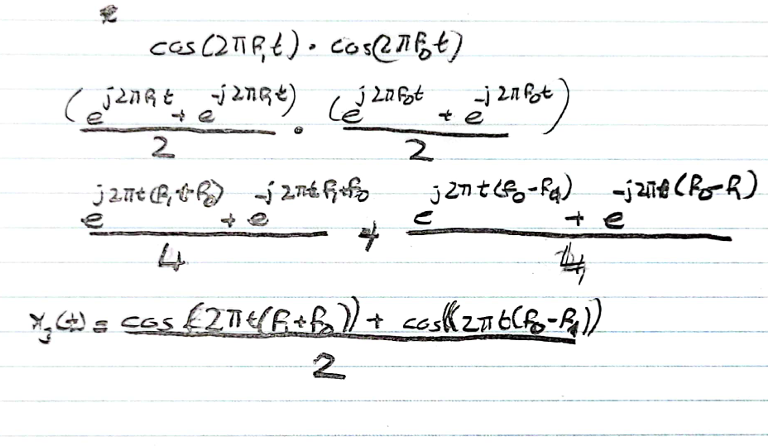 cos(2πf₁t) · cos(2πf₀t)
(e^{j2πf₁t} + e^{-j2πf₁t})/2 · (e^{j2πf₀t} + e^{-j2πf₀t})/2
(e^{j2πt(f₁+f₀)} + e^{-j2πt f₁+f₀})/4 + (e^{j2πt(f₀-f₁)} + e^{-j2πt(f₀-f₁)})/4
x₃(t) = (cos(2πt(f₁+f₀)) + cos((2πt(f₀-f₁)))/2